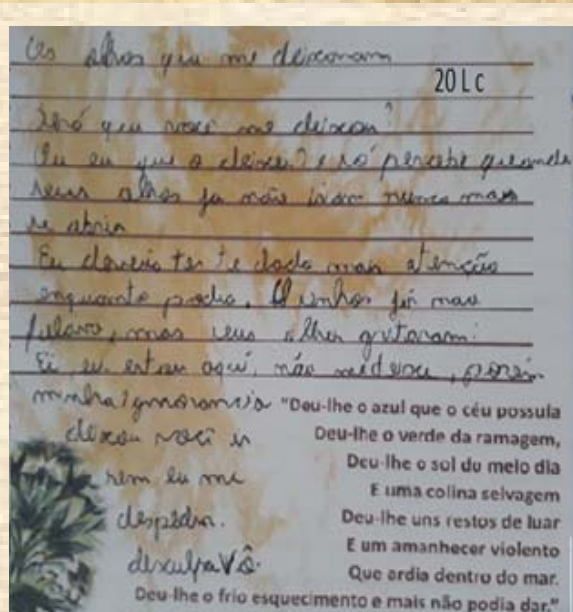 Os olhos que me deixaram
20 L c
Será que você me deixou?
Ou eu que o deixei? e só percebi quando
seus olhos já não iriam nunca mais
se abrir
Eu deveria ter te dado mais atenção
enquanto podia. O senhor já não
falava, mas seus olhos gritavam:
Ei eu estou aqui, não me deixe, porém
minha ignorancia
deixou você ir
sem eu me
despedir.
desculpa Vô.
"Deu-lhe o azul que o céu possuía
Deu-lhe o verde da ramagem,
Deu-lhe o sol do meio dia
E uma colina selvagem
Deu-lhe uns restos de luar
E um amanhecer violento
Que ardia dentro do mar.
Deu-lhe o frio esquecimento e mais não podia dar."